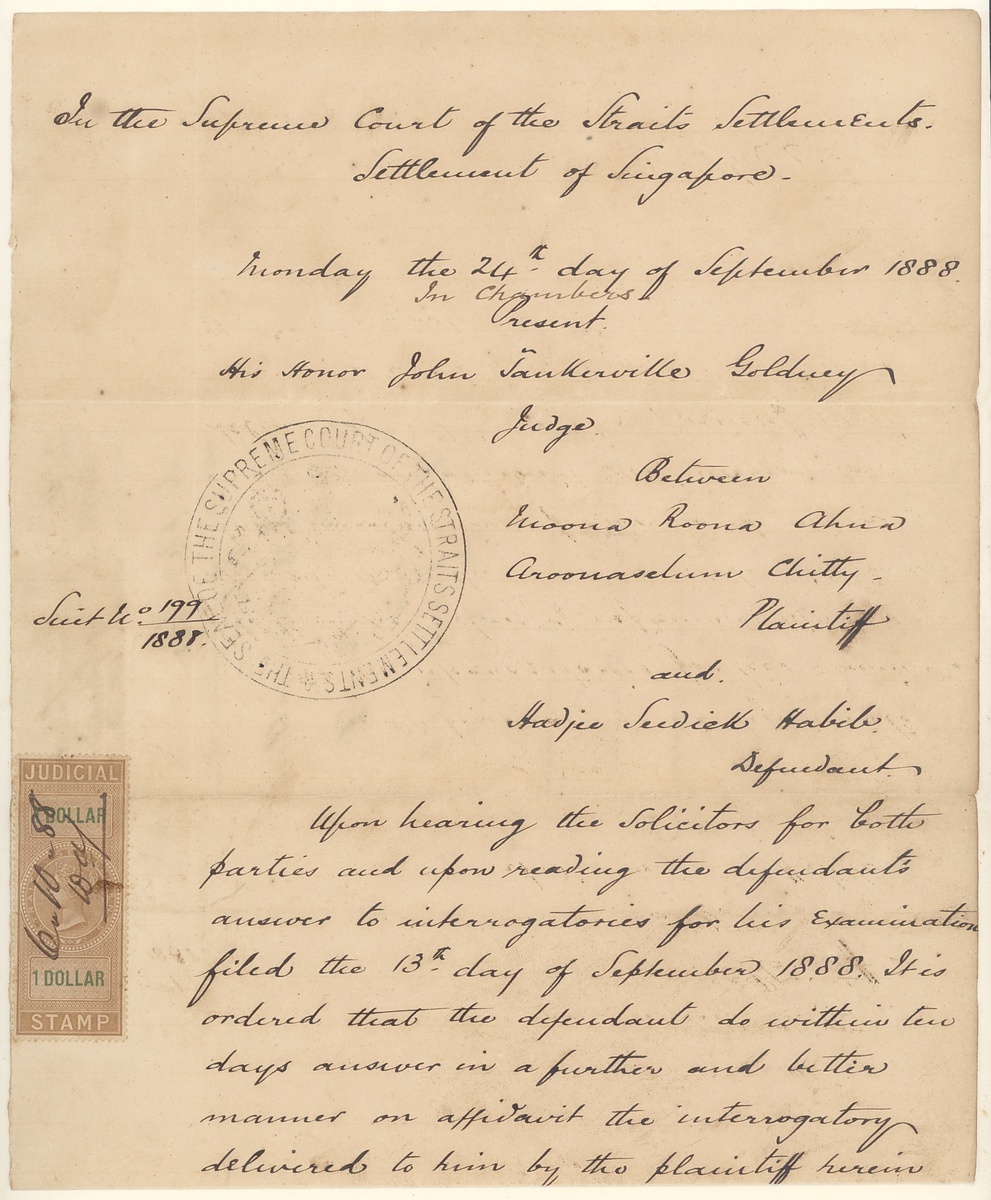 In the Supreme Court of the Straits Settlements.
Settlement of Singapore.
Monday the 24th day of September 1888.
In Chambers.
Present.
His Honor John Tankerville Goldney
Judge.
Between
Moona Roona Ahna
Aroonaselum Chitty.
Plaintiff
and.
Hadjee Sedick Habib.
Defendant.
Suit No 199
1888.
THE SEAL OF THE SUPREME COURT OF THE STRAITS SETTLEMENTS
JUDICIAL
DOLLAR
1 DOLLAR
STAMP
Upon hearing the Solicitors for both
parties and upon reading the defendant's
answer to interrogatories for his Examination
filed the 13th day of September 1888. It is
ordered that the defendant do within ten
days answer in a further and better
manner on affidavit the interrogatory
delivered to him by the plaintiff herein